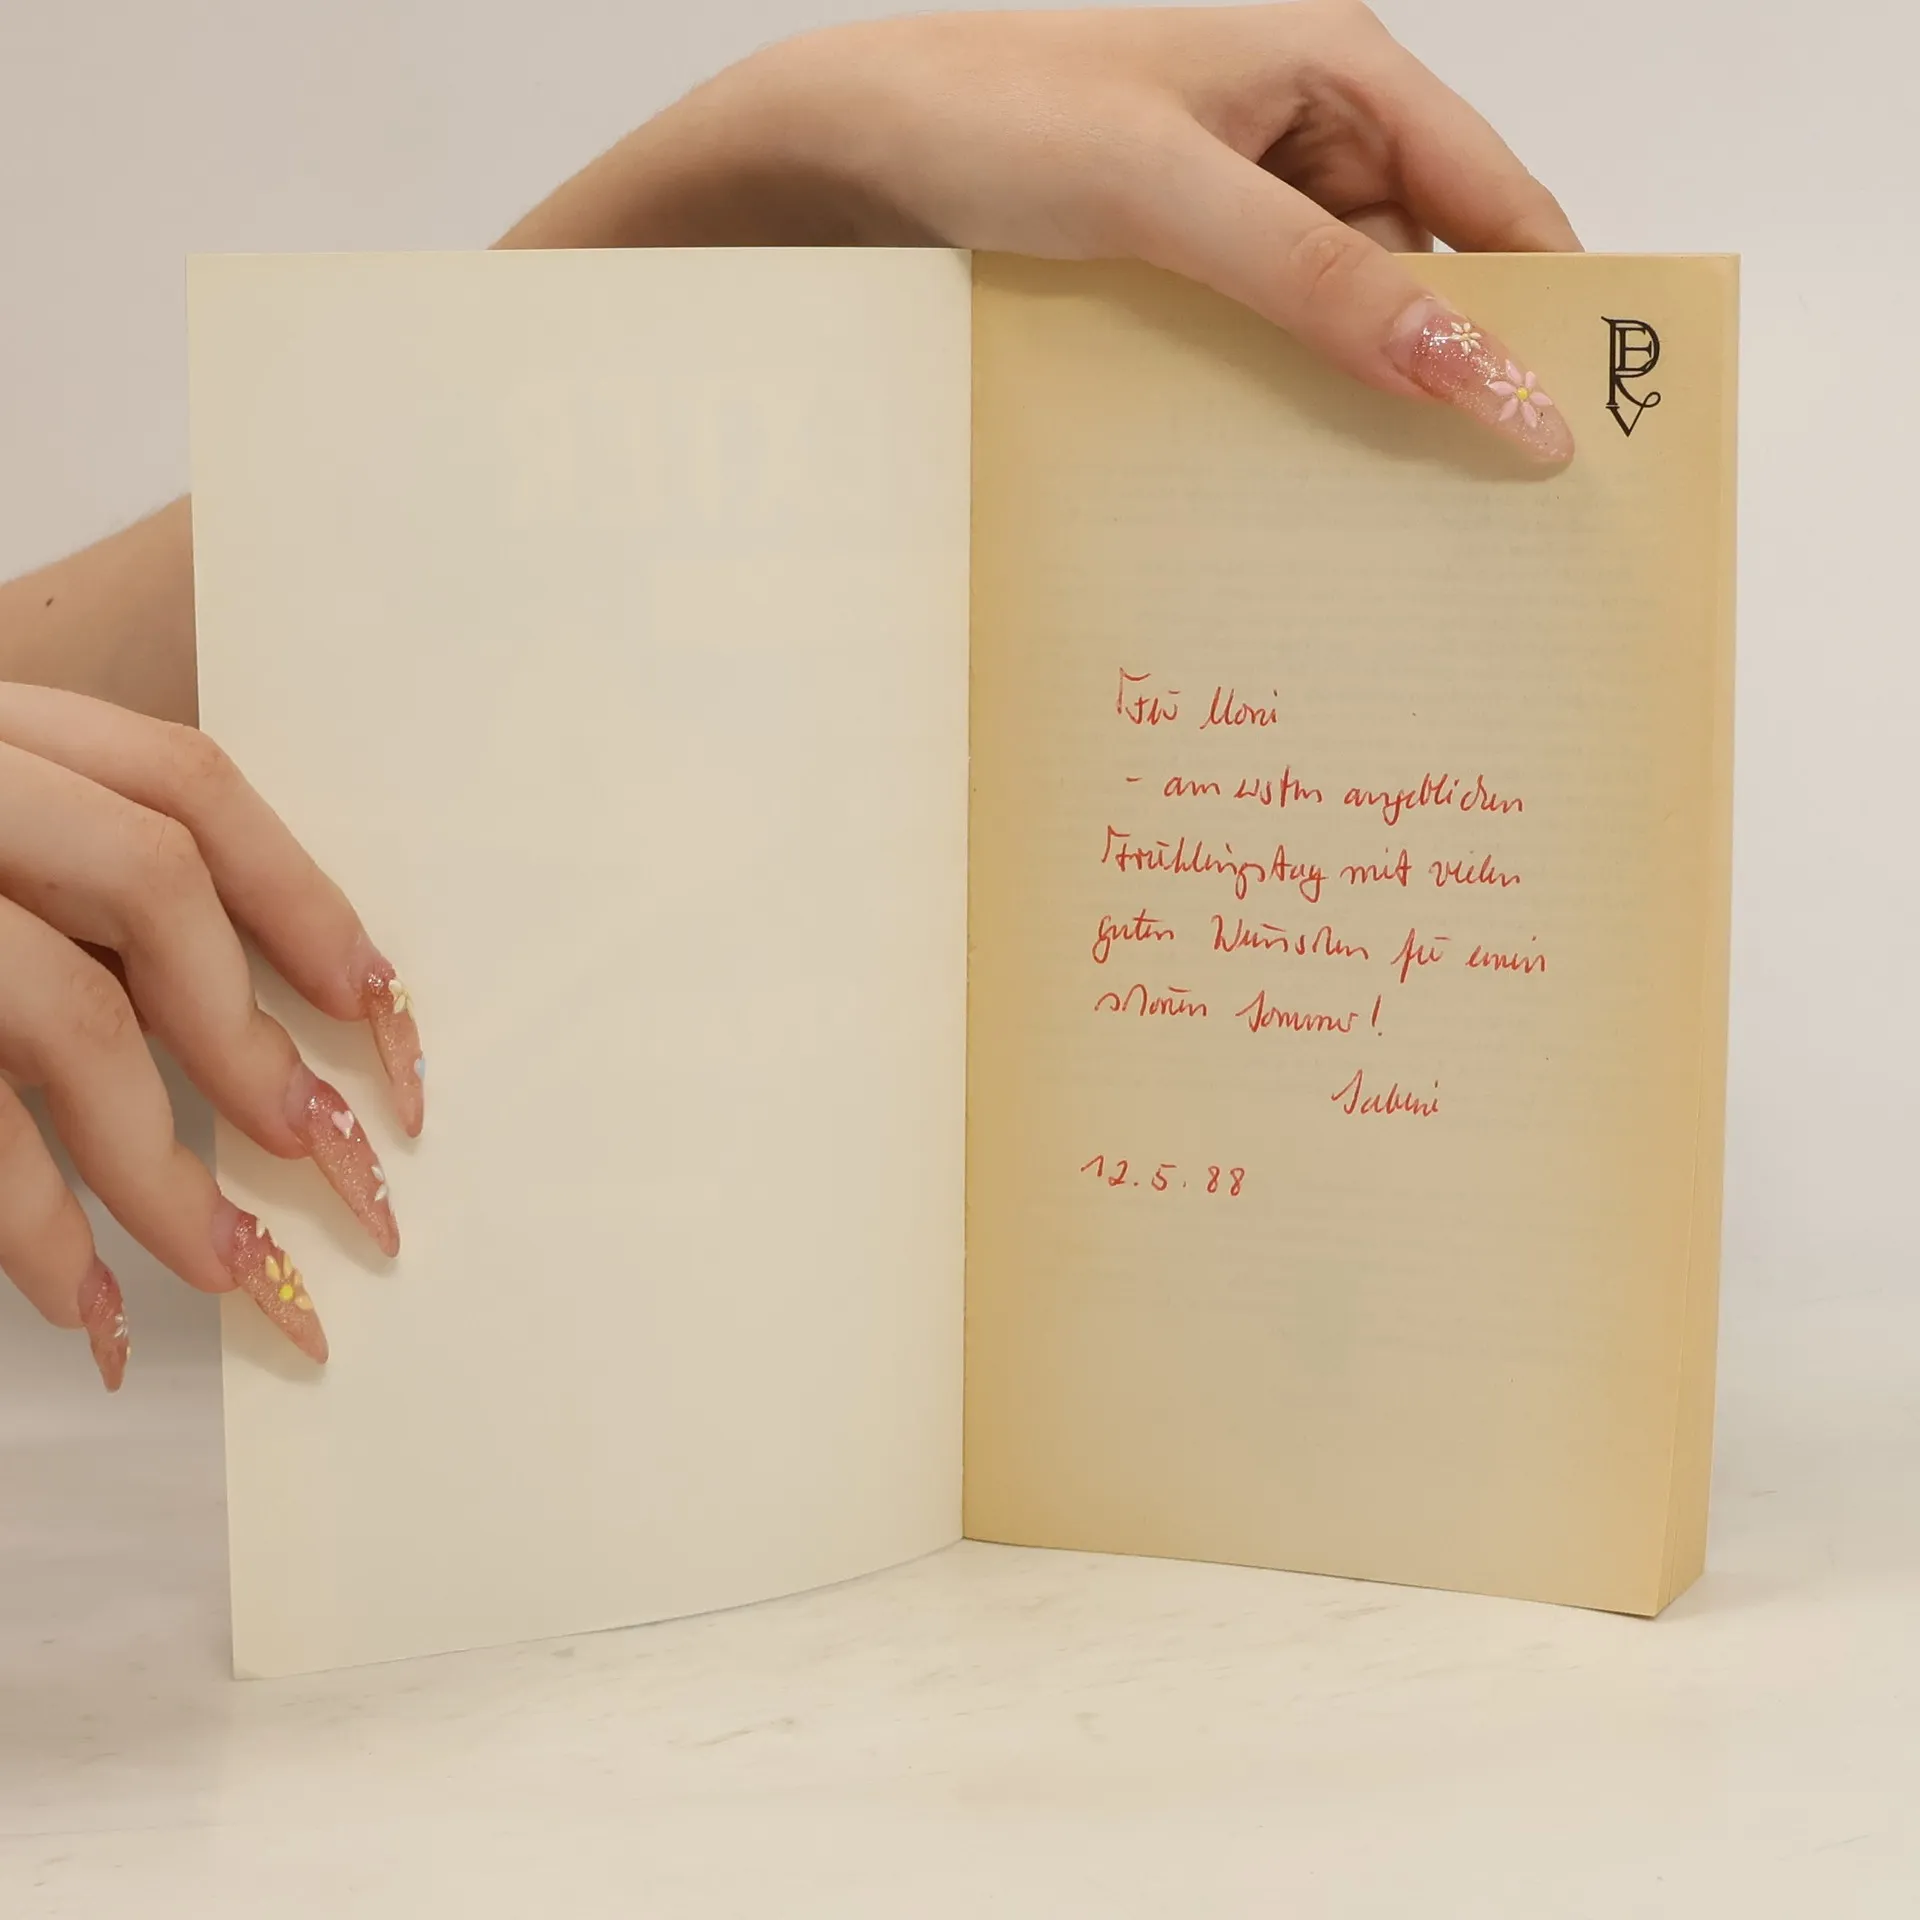 PEV
Für Moni
- am ersten angeblichen
Frühlingstag mit vielen
guten Wünschen für einen
schönen Sommer!
Sabine
12.5.88